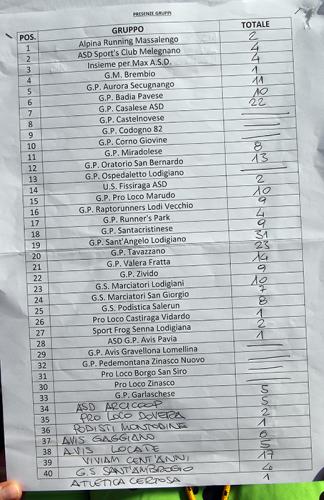 PRESENZE GRUPPI
POS. GRUPPO TOTALE
1 Alpina Running Massalengo 2
2 ASD Sport's Club Melegnano 4
3 Insieme per Max A.S.D. 4
4 G.M. Brembio 1
5 G.P. Aurora Secugnango 11
6 G.P. Badia Pavese 10
7 G.P. Casalese ASD 22
8 G.P. Castelnovese
9 G.P. Codogno 82
10 G.P. Corno Giovine
11 G.P. Miradolese 8
12 G.P. Oratorio San Bernardo 13
13 G.P. Ospedaletto Lodigiano
14 U.S. Fissiraga ASD 2
15 G.P. Pro Loco Marudo 10
16 G.P. Raptorunners Lodi Vecchio 9
17 G.P. Runner's Park 4
18 G.P. Santacristinese 9
19 G.P. Sant'Angelo Lodigiano 31
20 G.P. Tavazzano 23
21 G.P. Valera Fratta 14
22 G.P. Zivido 9
23 G.S. Marciatori Lodigiani 10
24 G.S. Marciatori San Giorgio 7
25 G.S. Podistica Salerun 8
26 Pro Loco Castiraga Vidardo 1
27 Sport Frog Senna Lodigiana 2
28 ASD G.P. Avis Pavia 1
29 G.P. Avis Gravellona Lomellina
30 G.P. Pedemontana Zinasco Nuovo
31 Pro Loco Borgo San Siro
32 Pro Loco Zinasco
33 G.P. Garlaschese 5
34 ASD ARCICOOP 5
35 PRO LOCO DOVERA 2
36 PODISTI MONTODINE 1
37 AVIS GAGGIANO
38 AVIS LOCATE 5
39 VIVIAM CENT'ANNI 17
40 G.S SANT'AMBROGIO 4
ATLETICA CERTOSA 1